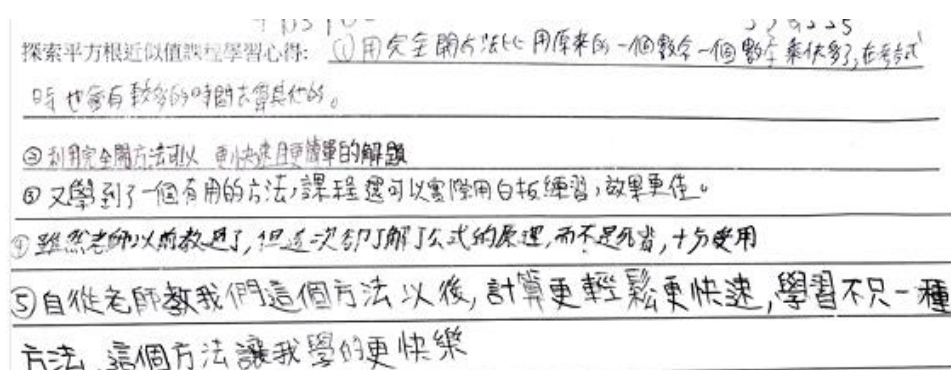 探索平方根近似值課程學習心得: ①用完全開方法比用原來的一個數字一個數字乘快多了,在考試
時也會有較多的時間去算其他的。
②利用完全開方法可以 更快速且更簡單的解題
③又學到了一個有用的方法,課程還可以實際用白板練習,效果更佳。
④雖然老師以前教過了,但這次卻了解了公式的原理,而不是死背,十分受用
⑤自從老師教我們這個方法以後,計算更輕鬆更快速,學習不只一種
方法,這個方法讓我學的更快樂